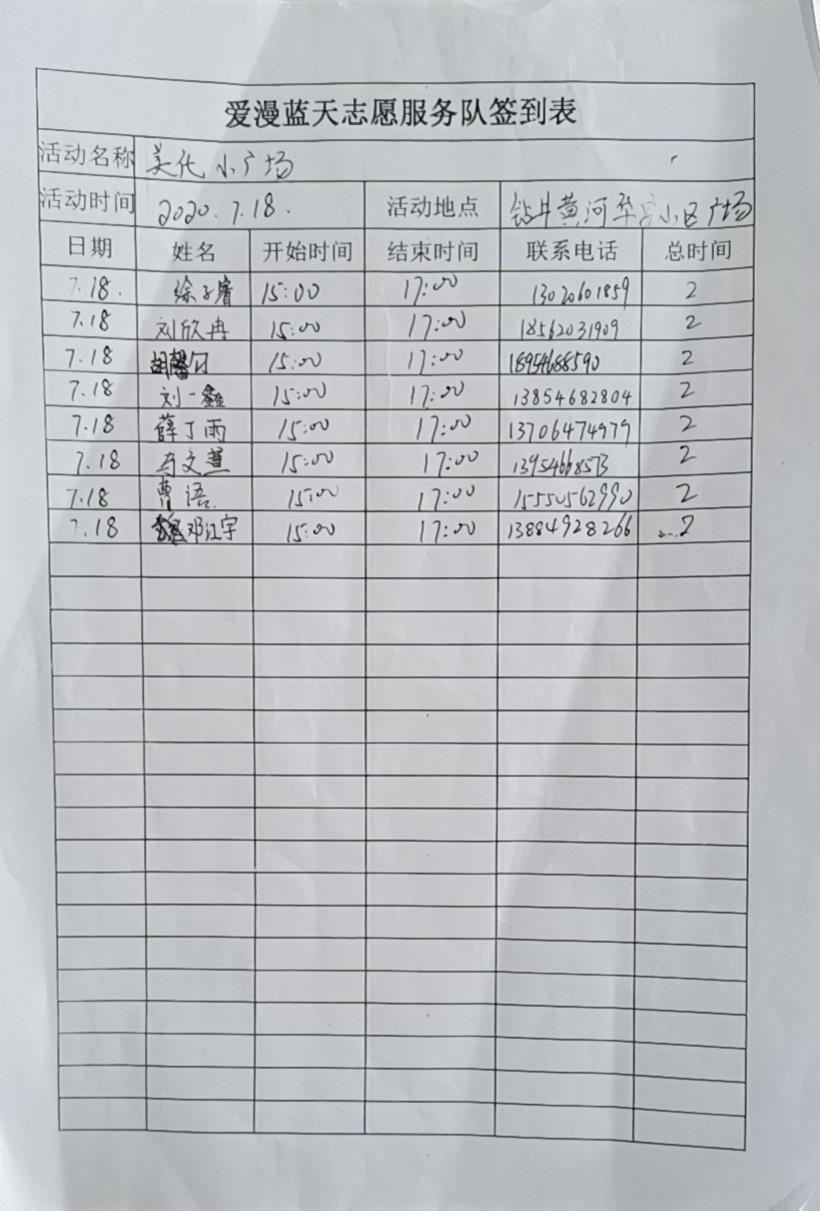 爱漫蓝天志愿服务队签到表
活动名称 美化小广场
活动时间 2020.7.18. 活动地点 钻井黄河华宫小区广场
日期 姓名 开始时间 结束时间 联系电话 总时间
7.18. 徐子睿 15:00 17:00 13020601859 2
7.18 刘欣冉 15:00 17:00 18562031909 2
7.18 胡馨 15:00 17:00 18954688590 2
7.18 刘一鑫 15:00 17:00 13854682804 2
7.18 薛丁雨 15:00 17:00 13706474979 2
7.18 文萱 15:00 17:00 13954668573 2
7.18 曹语 15:00 17:00 15550562990 2
7.18 邓江宇 15:00 17:00 13884928266 2